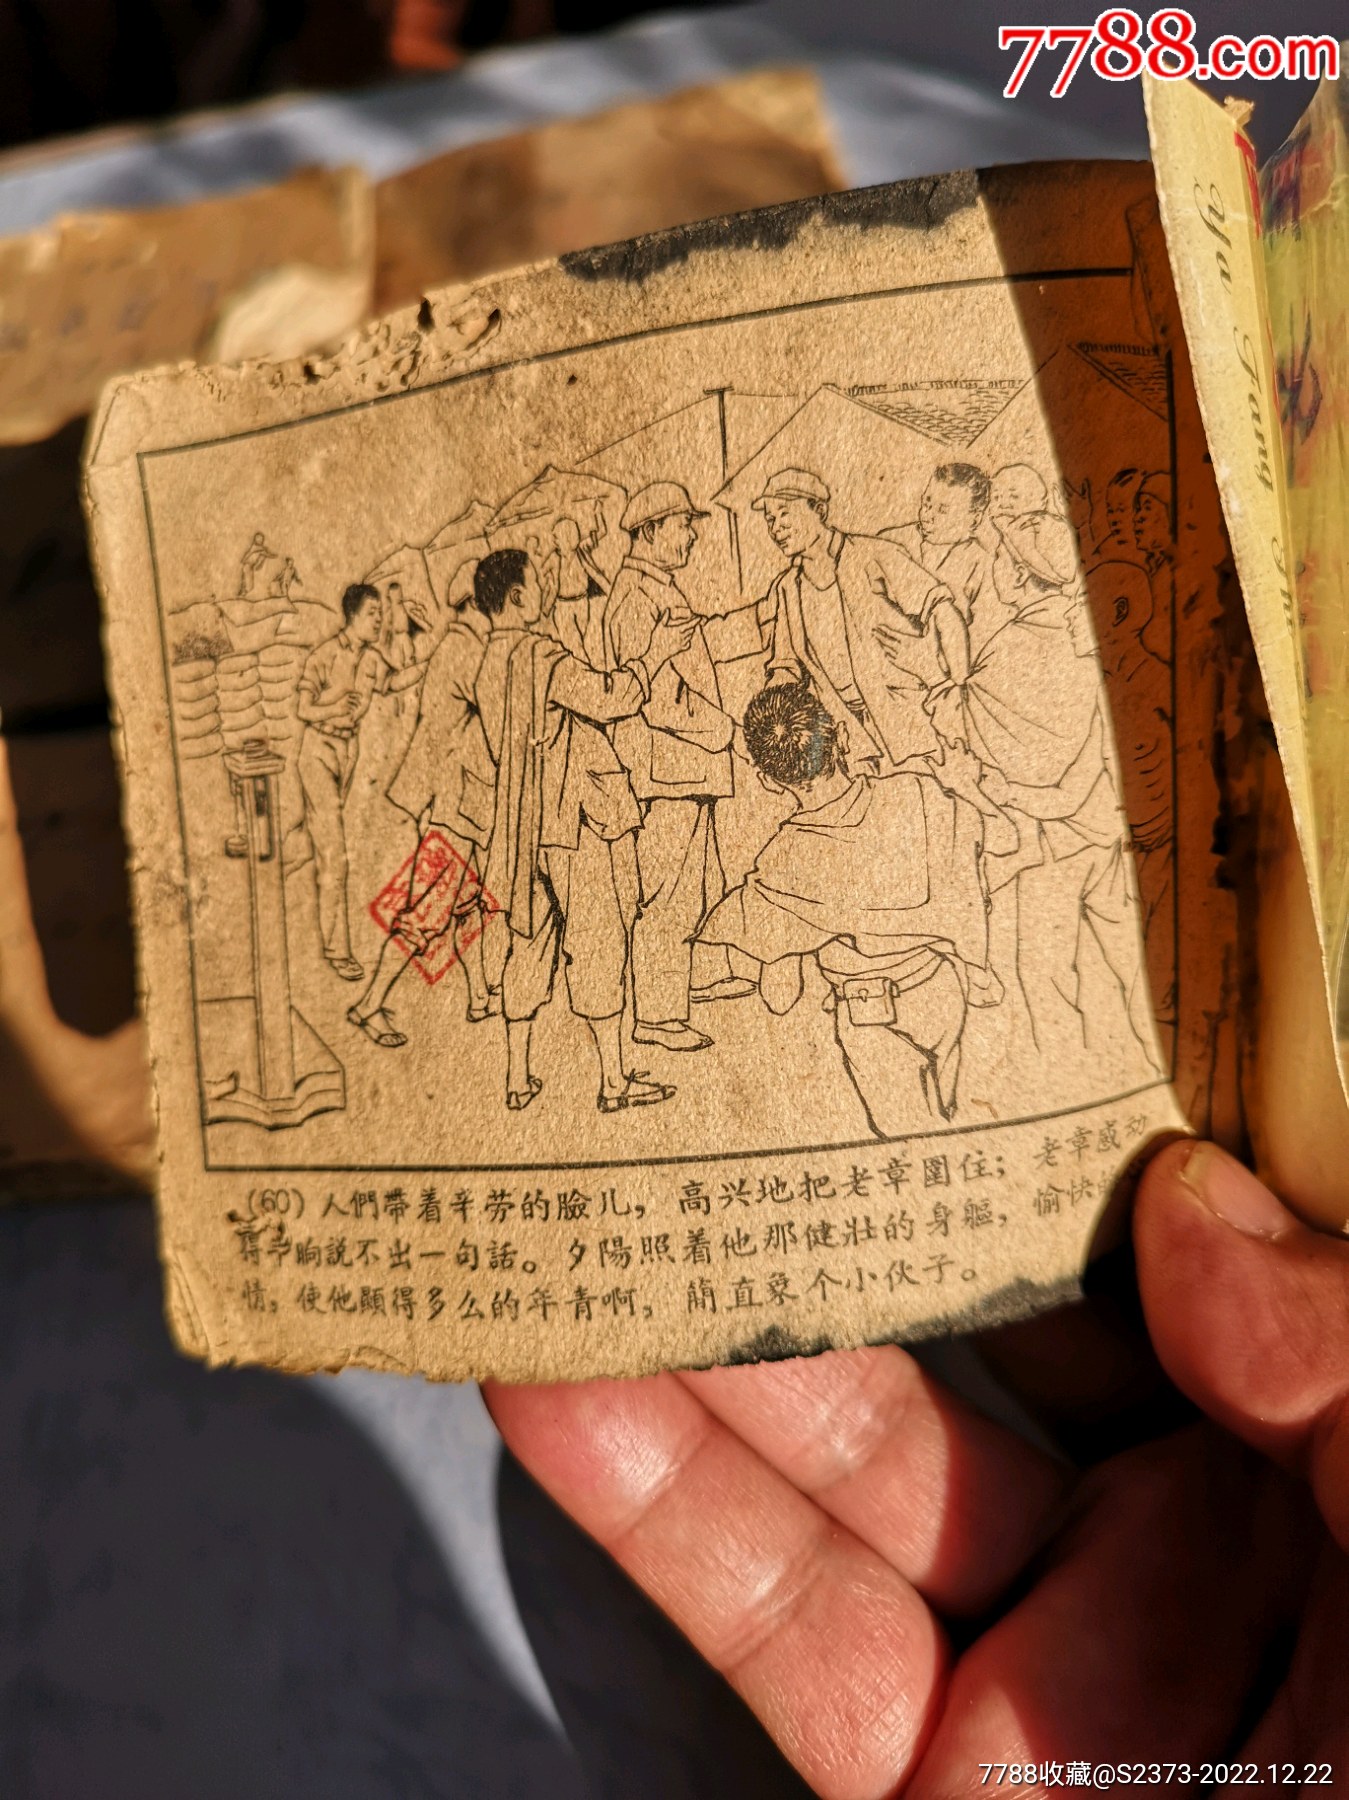 7788.com
Ya Fang
(60) 人們帶着辛劳的臉儿，高兴地把老章圍住；老章感动
得半晌說不出一句話。夕陽照着他那健壮的身軀，愉快的
情，使他顯得多么的年青啊，簡直象个小伙子。
7788收藏@S2373-2022.12.22